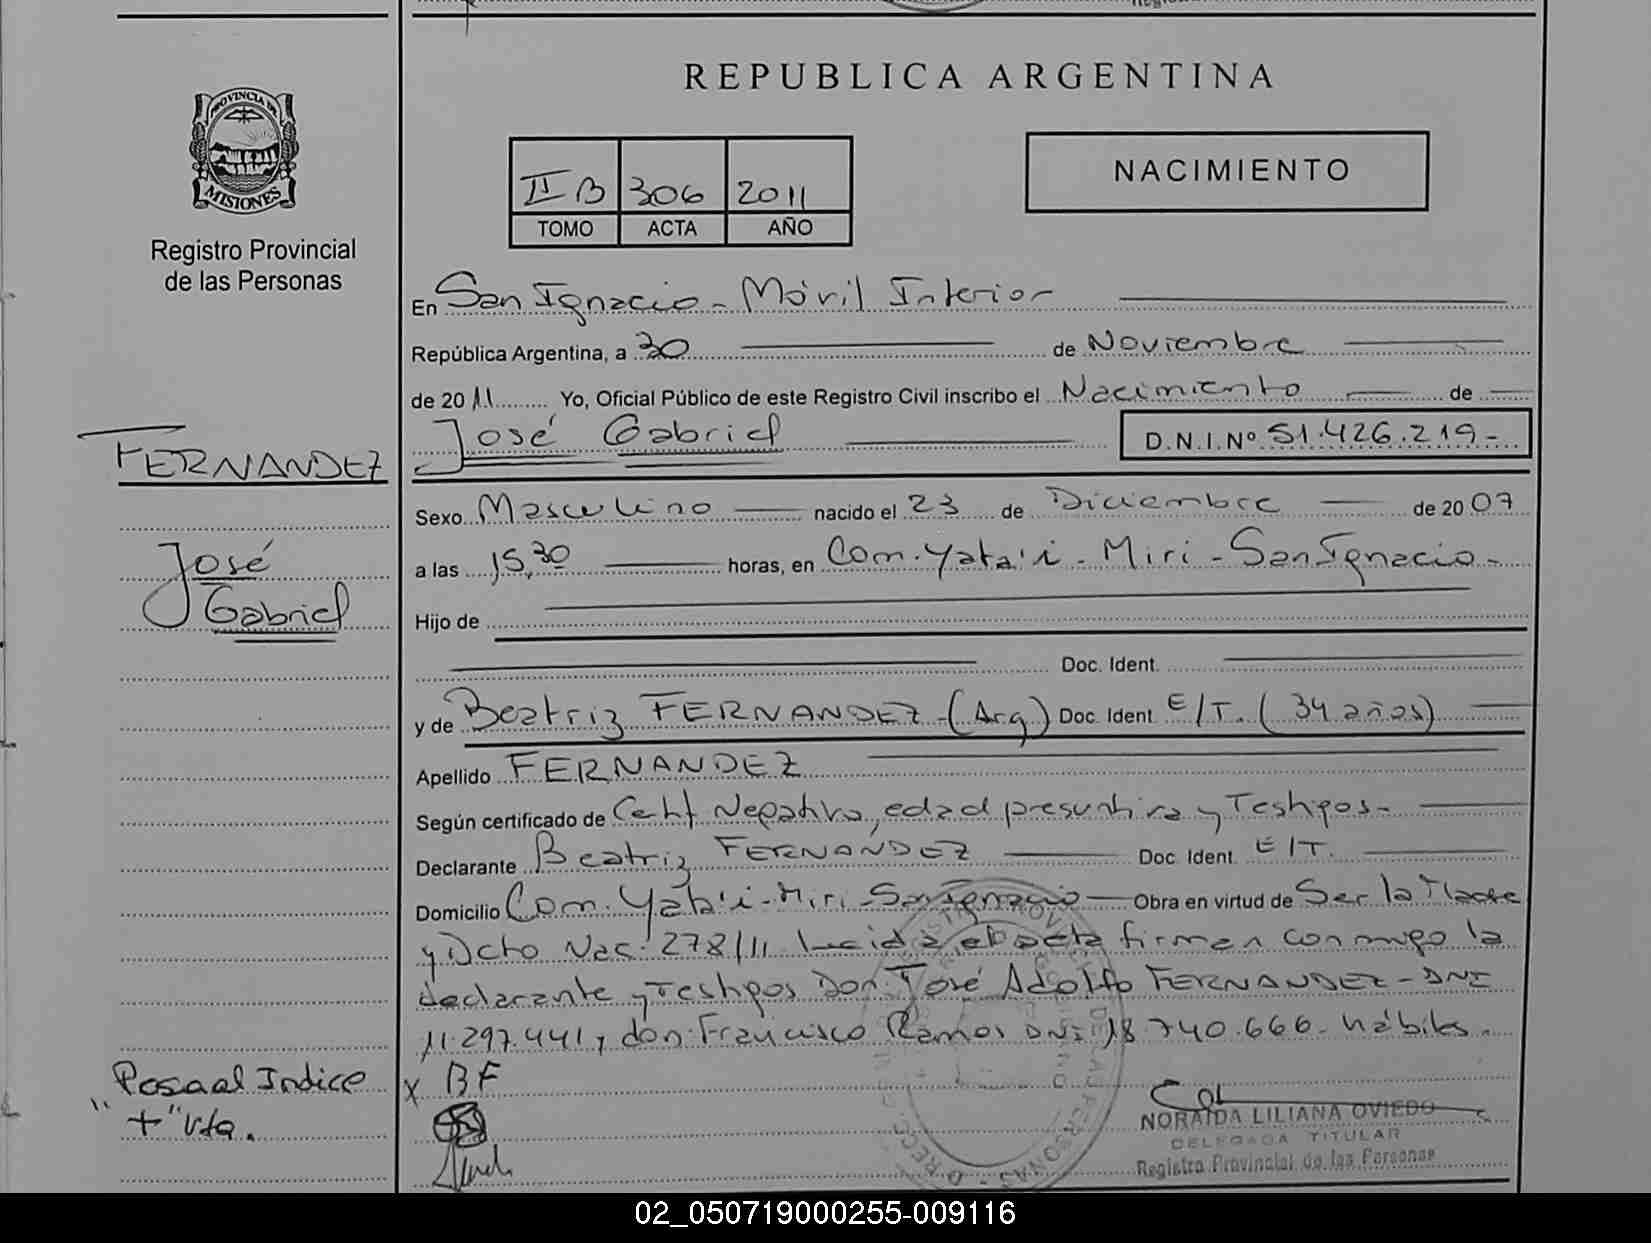 REPUBLICA ARGENTINA
PROVINCIA DE
MISIONES
Registro Provincial
de las Personas
II B 306 2011
TOMO ACTA AÑO
NACIMIENTO
En San Ignacio - Móvil Interior
República Argentina, a 30 de Noviembre
de 2011 Yo, Oficial Público de este Registro Civil inscribo el Nacimiento de
José Gabriel D.N.I.Nº 51.426.219-
FERNANDEZ
José
Gabriel
Sexo Masculino nacido el 23 de Diciembre de 2007
a las 15,30 horas, en Com. Yata'i - Miri - San Ignacio -
Hijo de
Doc. Ident.
y de Beatriz FERNANDEZ - (Arg) Doc. Ident. E/T. (34 años)
Apellido FERNANDEZ
Según certificado de Cert Negativa, edad presuntiva y Testigos -
Declarante Beatriz FERNANDEZ Doc. Ident. E/T.
Domicilio Com. Yata'i - Miri - San Ignacio Obra en virtud de Ser la Madre
y Dcto Nac. 278/11 Leida el acta firman conmigo la
declarante y Testigos Don José Adolfo FERNANDEZ - DNI
11.297.441 y don Francisco Ramos DNI 18.740.666. hábiles.
Pasa al Indice
"+" Vta.
X BF
NORAIDA LILIANA OVIEDO
DELEGADA TITULAR
Registro Provincial de las Personas
02_050719000255-009116